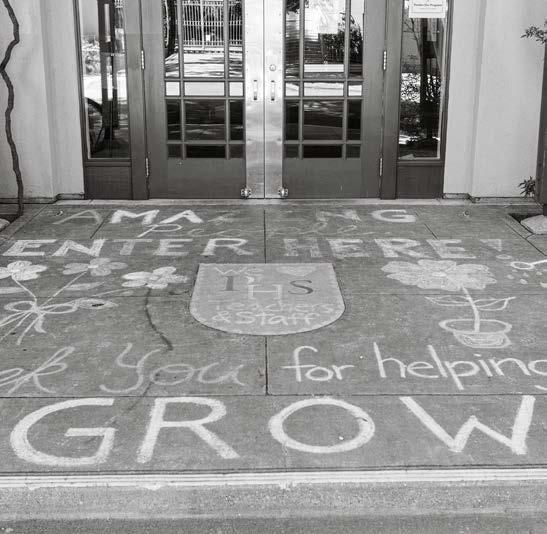 AMAZING
People
ENTER HERE!
WE
IHS
Teachers
& Staff
You for helping
GROW